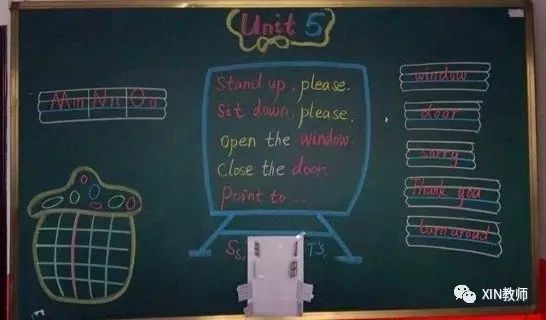 Unit 5
Mm Nn Oo
Stand up, please.
Sit down, please.
Open the window.
Close the door.
Point to ...
window
door
sorry
Thank you
turn aroad
Ss, T's,
XIN教师